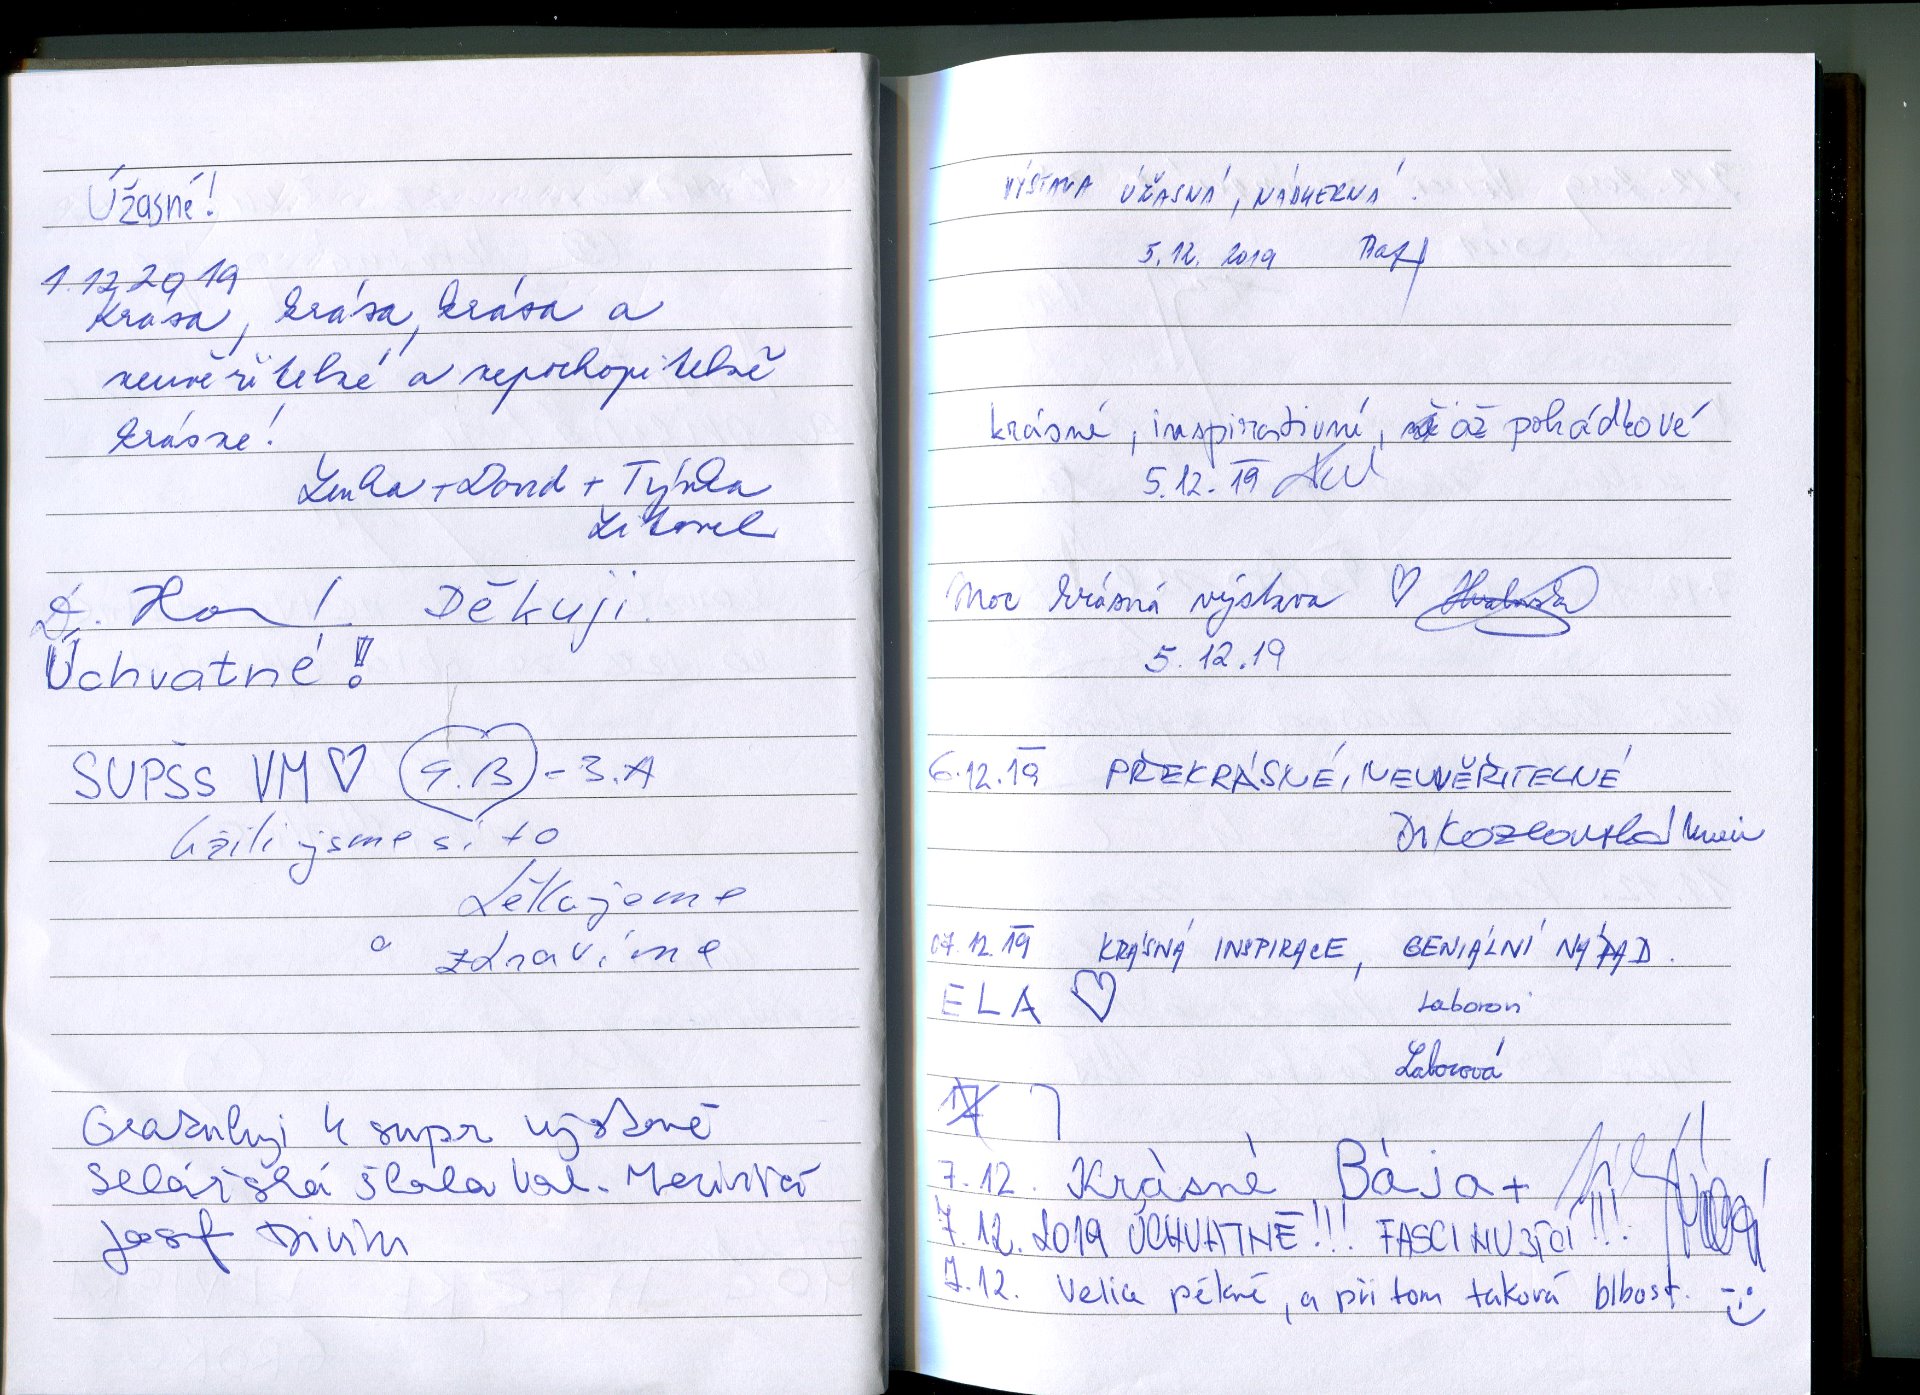 Úžasné!
1.12.2019
Krása, krása, krása a
neuvěřitelné a nepochopitelně
krásné!
Lenka + David + Týnka
Litovel
Děkuji.
Úchvatné!
SUPŠS VM ♡ 4.B - 3.A
Užili jsme si to
děkujeme
a zdravíme
Gratuluji k supr výstavě
Sklářská škola Val. Meziříčí
Josef Divín
VÝSTAVA ÚŽASNÁ, NÁDHERNÁ!
5.12. 2019
krásné, inspirativní, až pohádkové
5.12.19
Moc krásná výstava ♡
5.12.19
6.12.19 PŘEKRÁSNÉ, NEUVĚŘITELNÉ
Dr Kozlovská
07.12.19 KRÁSNÁ INSPIRACE, GENIÁLNÍ NÁPAD.
ELA ♡ Laborovi
Laborová
17 7
7.12. Krásné Bája +
7.12.2019 ÚCHVATNÉ!!! FASCINUJÍCÍ!!!
7.12. Velice pěkné, a při tom taková blbost. :-)